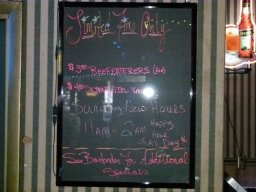 Limited Time Only
$3.00 BEEFEATERS (Gin)
Sunday New Hours
11AM - 2AM Happy
Hour
All Day
See Bartender For Additional
Specials